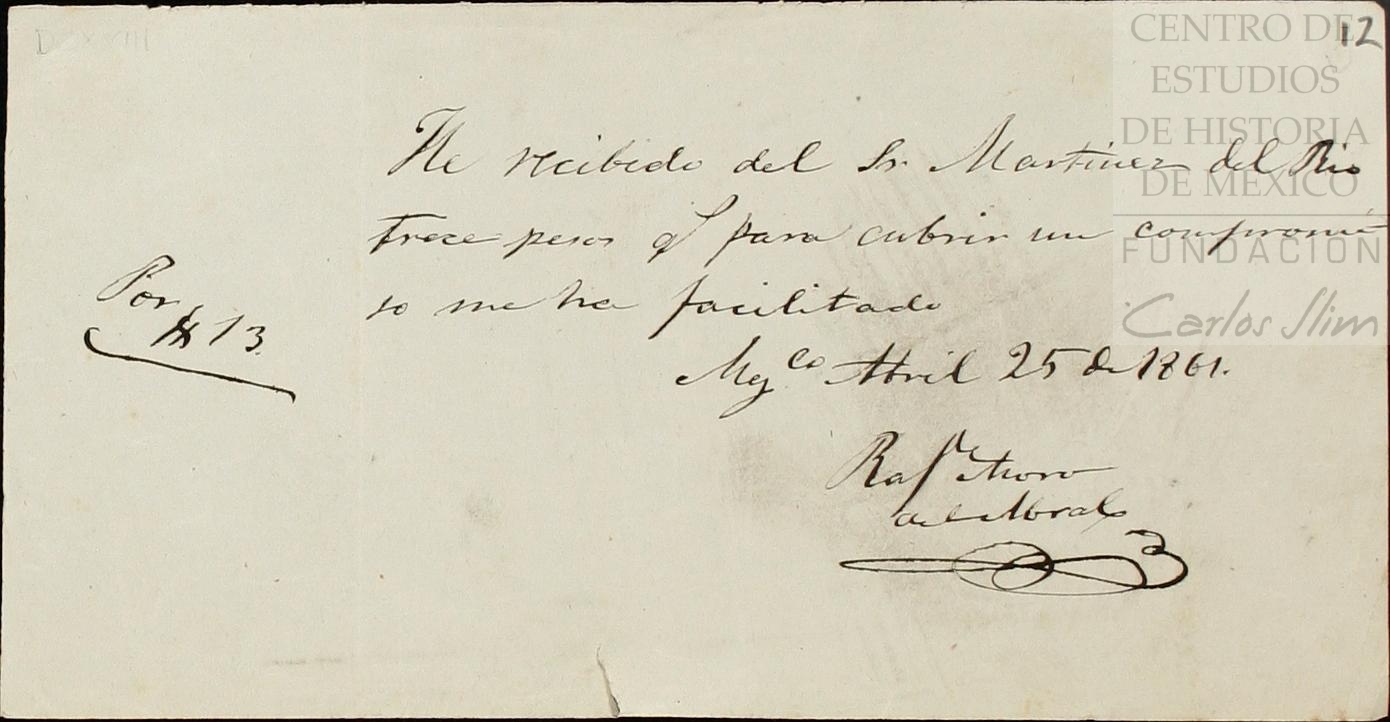 12
CENTRO DE
ESTUDIOS
DE HISTORIA
DE MÉXICO
FUNDACIÓN
Carlos Slim
He recibido del Sr. Martinez del Rio
trece pesos q para cubrir un compromi
so me ha facilitado
Por
$ 13.
Mejco Abril 25 de 1861.
Raf Moro
del Moral